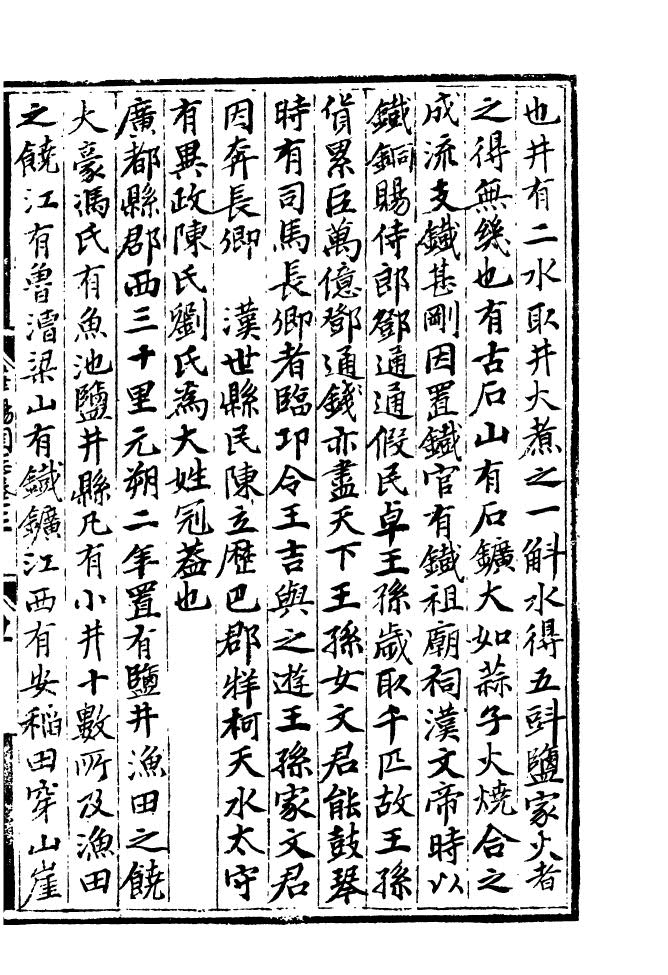 也井有二水取井火煮之一斛水得五㪷鹽家火者
之得無幾也有古石山有石鑛大如蒜子火燒合之
成流支鐵甚剛因置鐵官有鐵祖廟祠漢文帝時以
鐵銅賜侍郎鄧通通假民卓王孫歲取千匹故王孫
貨累巨萬億鄧通錢亦盡天下王孫女文君能鼓琴
時有司馬長卿者臨卭令王吉與之遊王孫家文君
因奔長卿　漢世縣民陳立歷巴郡牂柯天水太守
有異政陳氏劉氏為大姓冠葢也
廣都縣郡西三十里元朔二年置有鹽井漁田之饒
大豪馮氏有魚池鹽井縣凡有小井十數所及漁田
之饒江有魯漕梁山有鐵鑛江西有安稻田穿山崖